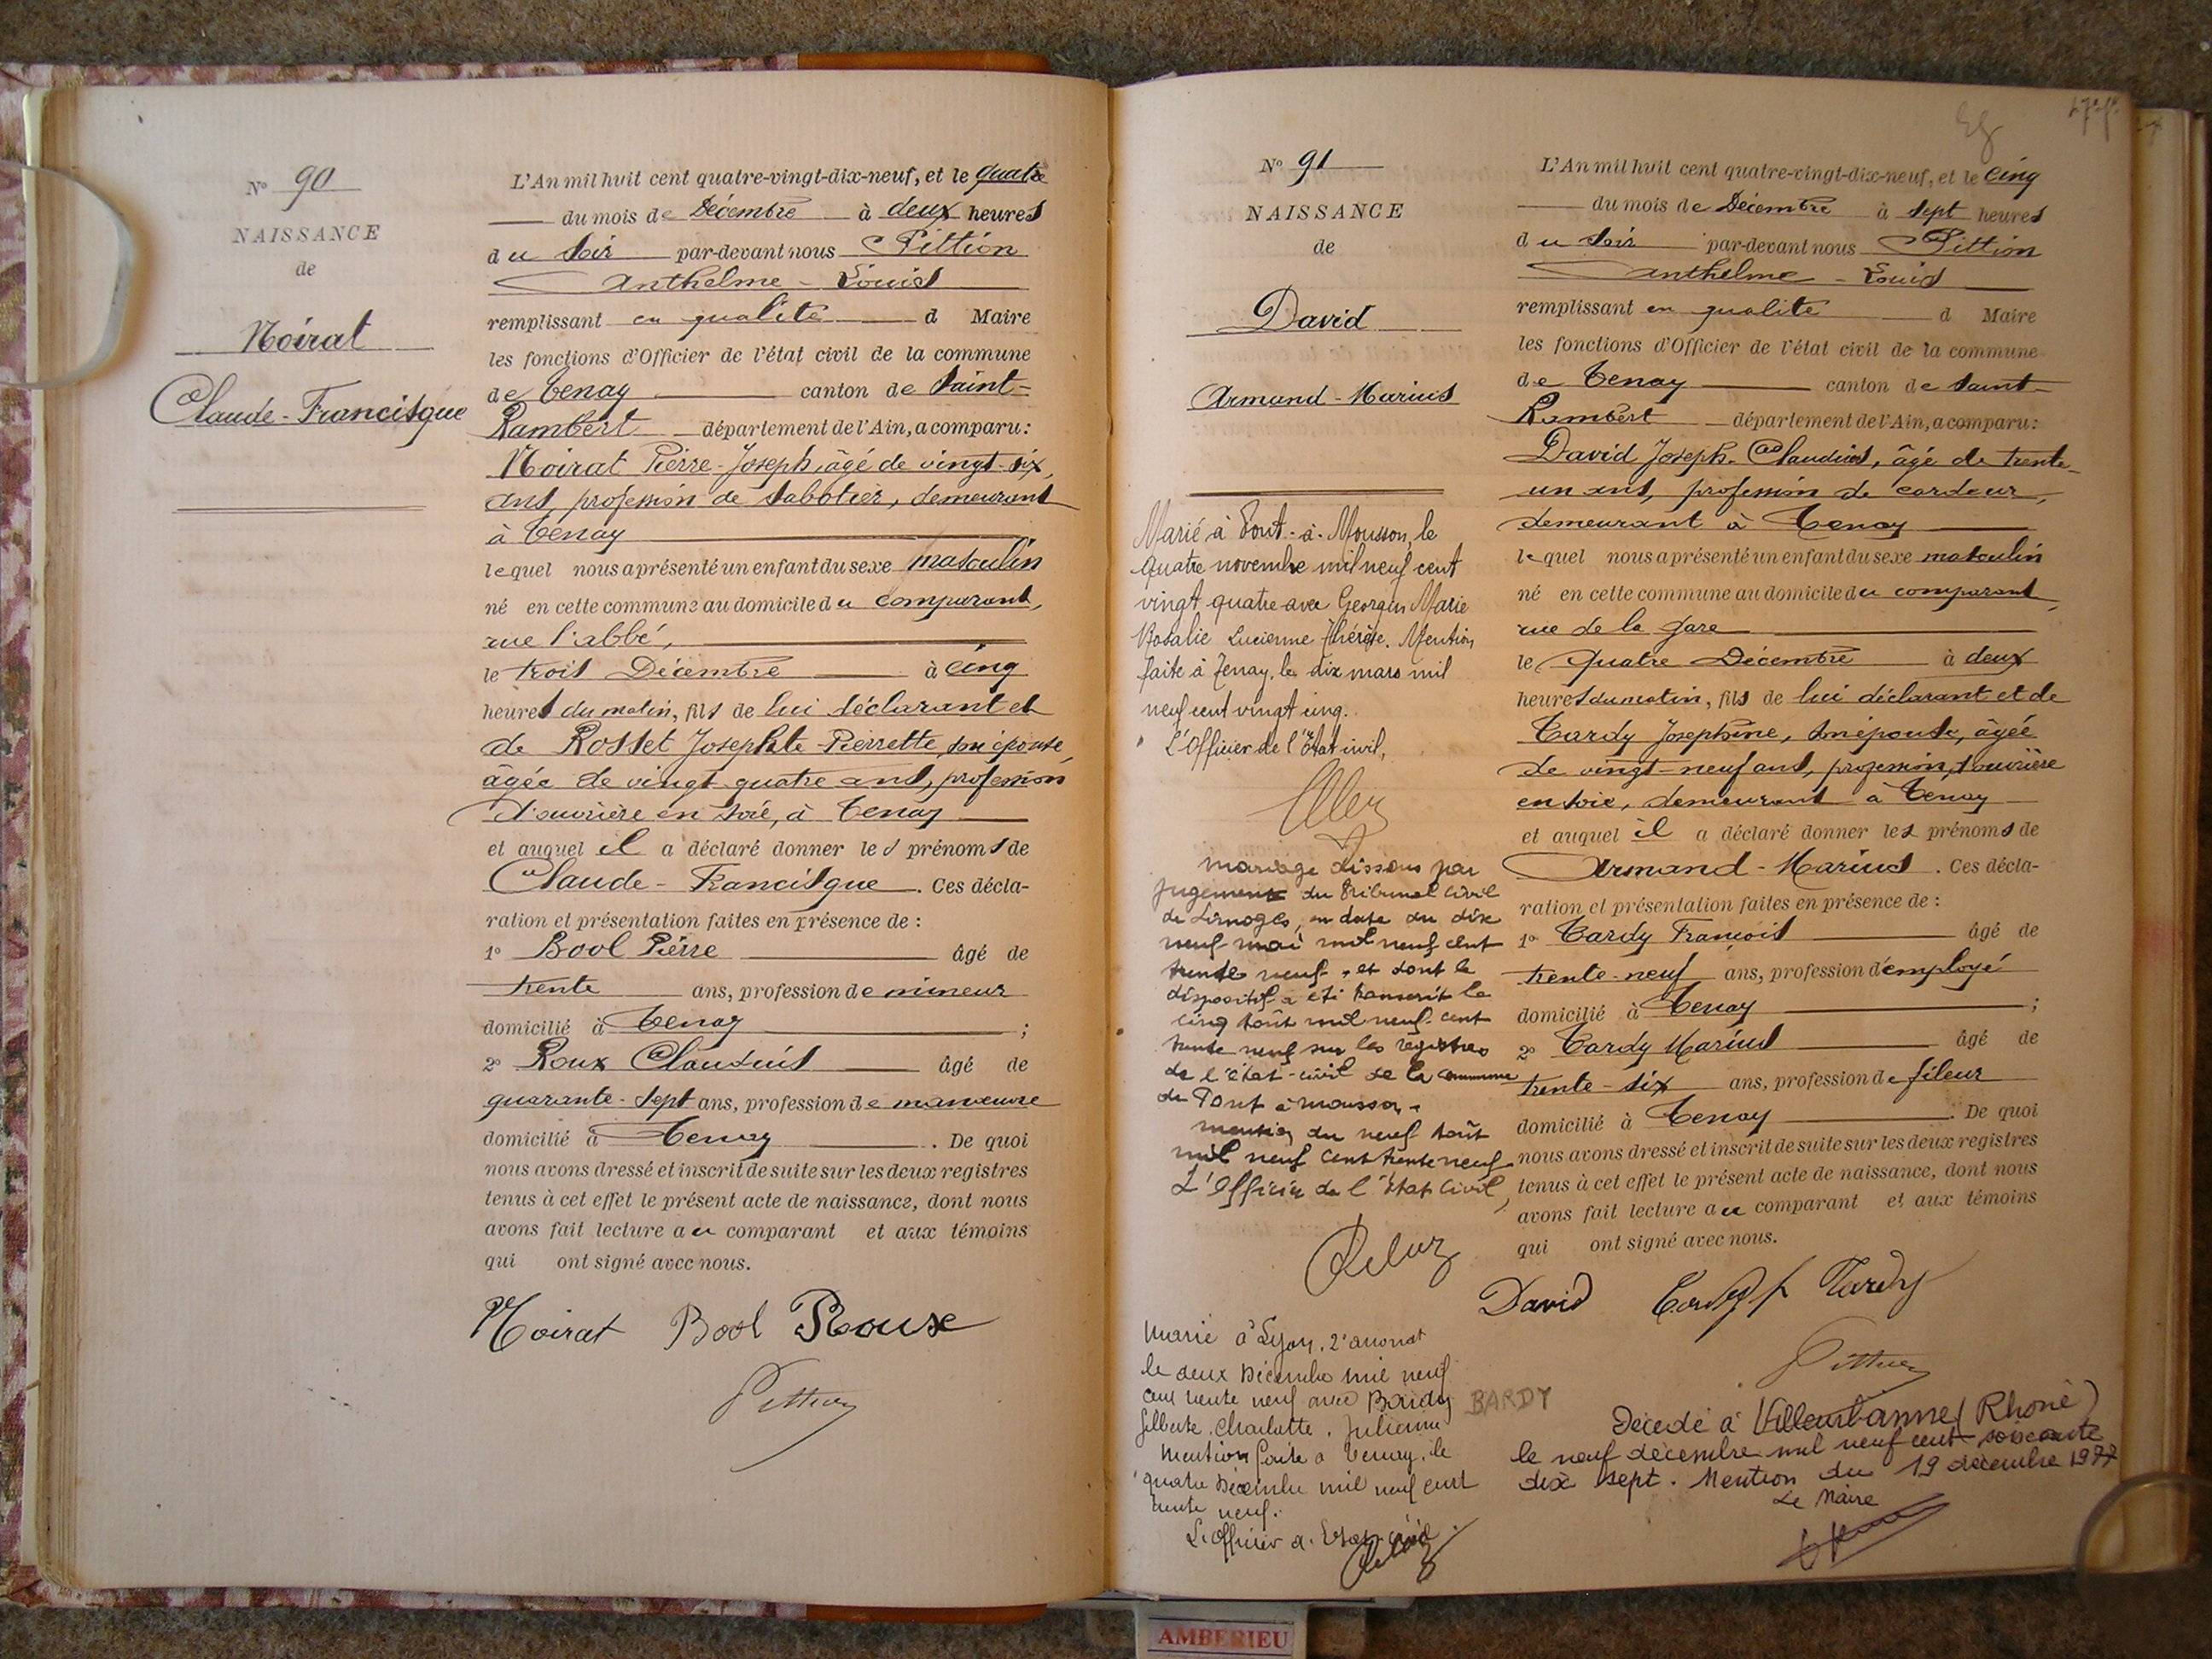 N° 90
NAISSANCE
de
Noirat
Claude-Francisque
L'An mil huit cent quatre-vingt-dix-neuf, et le quatre
du mois de Décembre à deux heures
du soir par-devant nous Pittion
Anthelme-Louis
remplissant en qualité d Maire
les fonctions d'Officier de l'état civil de la commune
de Tenay canton de Saint-
Rambert département de l'Ain, a comparu:
Noirat Pierre-Joseph, âgé de vingt-six,
ans, profession de sabotier, demeurant
à Tenay
lequel nous a présenté un enfant du sexe masculin
né en cette commune au domicile du comparant,
rue l'abbé,
le trois Décembre à cinq
heures du matin, fils de lui déclarant et
de Rosset Josephte-Pierrette, son épouse,
âgée de vingt-quatre ans, profession
d'ouvrière en soie, à Tenay
et auquel il a déclaré donner les prénoms de
Claude-Francisque. Ces décla-
ration et présentation faites en présence de :
1° Bool Pierre âgé de
trente ans, profession de mineur
domicilié à Tenay ;
2° Roux Claudius âgé de
quarante-sept ans, profession de manœuvre
domicilié à Tenay. De quoi
nous avons dressé et inscrit de suite sur les deux registres
tenus à cet effet le présent acte de naissance, dont nous
avons fait lecture au comparant et aux témoins
qui ont signé avec nous.
Noirat Bool Roux
Pittion
N° 91
NAISSANCE
de
David
Armand-Marius
Marié à Pont-à-Mousson, le
quatre novembre mil neuf cent
vingt quatre avec Georgin Marie
Rosalie Lucienne Thérèse. Mention
faite à Tenay, le dix mars mil
neuf cent vingt cinq.
L'Officier de l'État civil,
mariage dissous par
jugement du Tribunal Civil
de Limoges, en date du dix
neuf mai mil neuf cent
trente neuf, et dont le
dispositif a été transcrit le
cinq août mil neuf cent
trente neuf sur les registres
de l'état-civil de la commune
de Pont à Mousson.
mention du neuf août
mil neuf cent trente neuf
L'Officier de l'Etat Civil,
Marié à Lyon, 2e arrondt
le deux Décembre mil neuf
cent trente neuf avec Bardy BARDY
Gilberte, Charlotte, Julienne
Mention faite à Tenay, le
quatre Décembre mil neuf cent
trente neuf.
L'officier d. Etat-civil.
Eg
L'An mil huit cent quatre-vingt-dix-neuf, et le cinq
du mois de Décembre à sept heures
du soir par-devant nous Pittion
Anthelme-Louis
remplissant en qualité d Maire
les fonctions d'Officier de l'état civil de la commune
de Tenay canton de Saint-
Rambert département de l'Ain, a comparu:
David Joseph-Claudius, âgé de trente-
un ans, profession de cardeur,
demeurant à Tenay
lequel nous a présenté un enfant du sexe masculin
né en cette commune au domicile du comparant,
rue de la gare
le quatre Décembre à deux
heures du matin, fils de lui déclarant et de
Tardy Josephine, son épouse, âgée
de vingt-neuf ans, profession d'ouvrière
en soie, demeurant à Tenay
et auquel il a déclaré donner les prénoms de
Armand-Marius. Ces décla-
ration et présentation faites en présence de :
1° Tardy François âgé de
trente-neuf ans, profession d'employé
domicilié à Tenay ;
2° Tardy Marius âgé de
trente-six ans, profession de fileur
domicilié à Tenay. De quoi
nous avons dressé et inscrit de suite sur les deux registres
tenus à cet effet le présent acte de naissance, dont nous
avons fait lecture au comparant et aux témoins
qui ont signé avec nous.
David Tardy f Tardy
Pittion
Décédé à Villeurbanne (Rhône)
le neuf décembre mil neuf cent soixante
dix sept. Mention du 19 décembre 1977
Le Maire
AMBERIEU